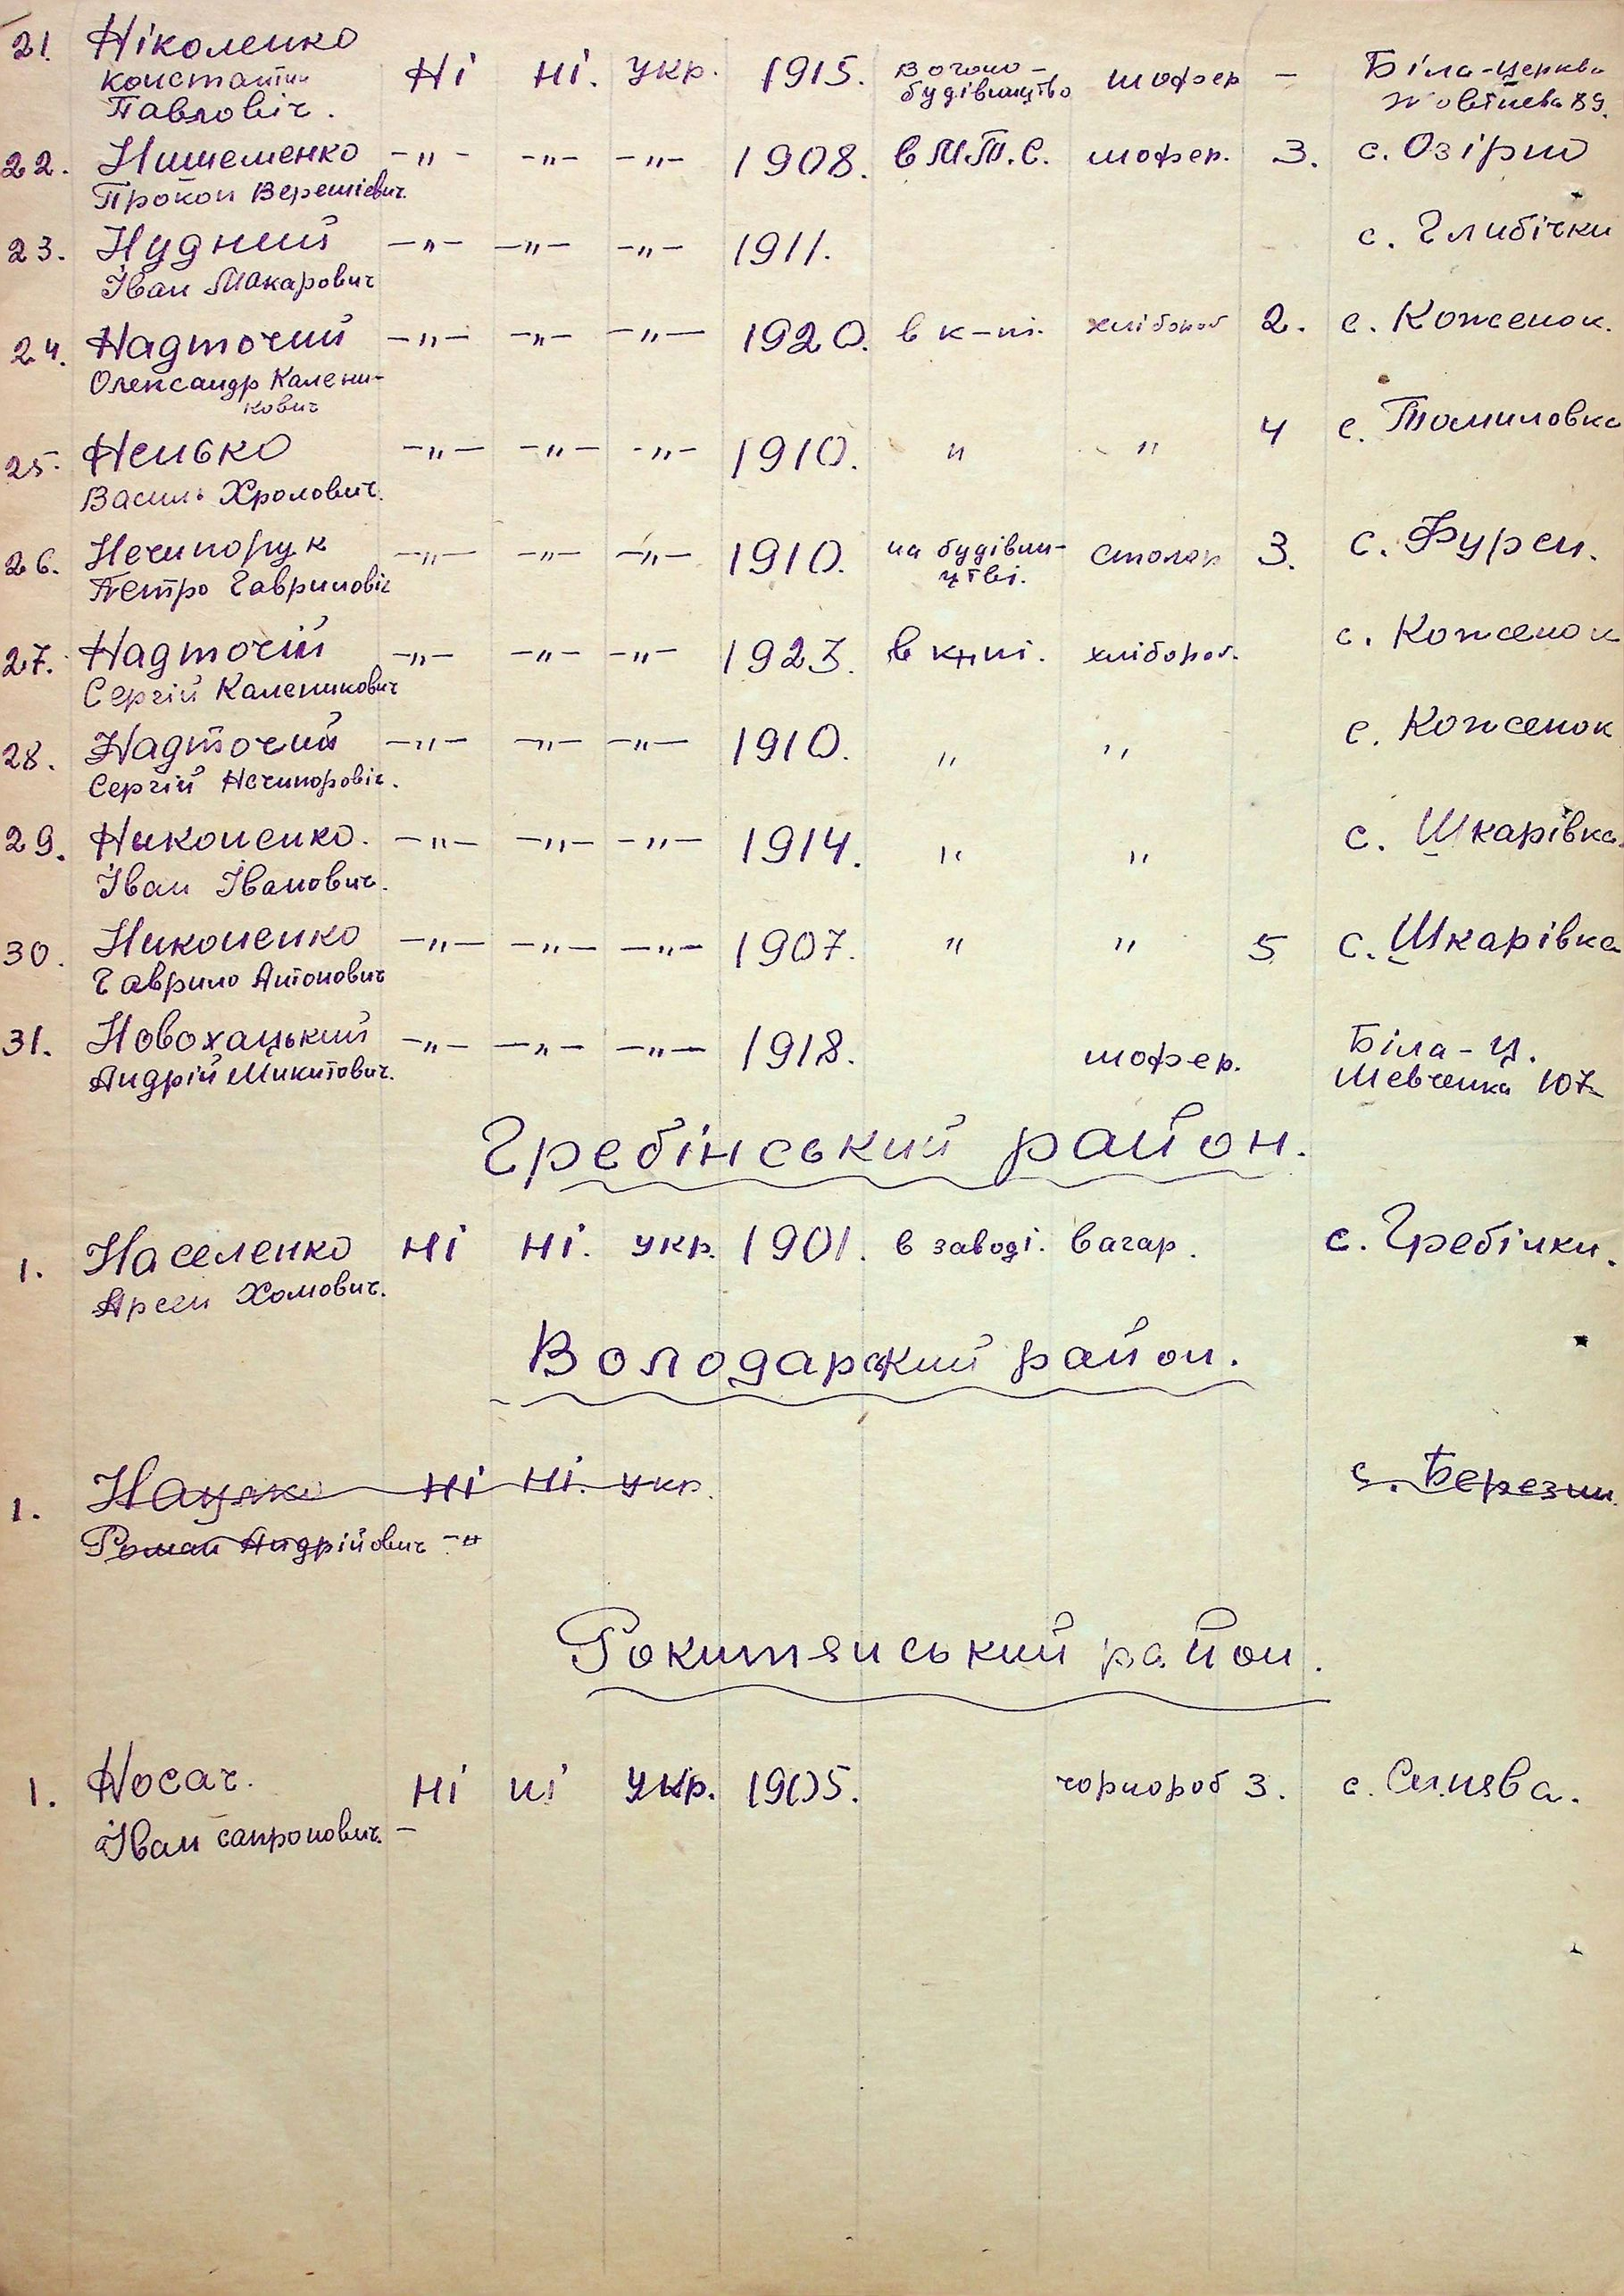 21. Ніколенко
Константин
Павловіч.
Ні ні. укр. 1915. шофер –
будівництво
Біла-Церква
Жовтнева 89.
22. Нишеменко –„– –„– –„– 1908. в М.Т.С. шофер. 3. с. Озірно
Прокоп
23. Нудний –„– –„– –„– 1911. с. Глибічки
Іван Макарович
24. Надточий –„– –„– –„– 1920. в к-пі. хлібороб 2. с. Коженок.
Олександр Калени-
кович
25. Ненько –„– –„– –„– 1910. „ „ 4 с. Томиловка
Василь Хролович.
26. Нечипорук –„– –„– –„– 1910. на будівни- столяр 3. с. Фурси.
цтві.
Петро Гавриловіч
27. Надточій –„– –„– –„– 1923. в к-пі. хлібороб. с. Коженок
Сергій Каленикович
28. Надточий –„– –„– –„– 1910. „ „ с. Коженок
Сергій Нечипоровіч.
29. Никоненко. –„– –„– –„– 1914. „ „ с. Шкарівка.
Іван Іванович.
30. Никоненко –„– –„– –„– 1907. „ „ 5 с. Шкарівка
Гаврило Антонович
31. Новохацький –„– –„– –„– 1918. шофер. Біла-Ц.
Андрій Микитович. Шевченка 107
Гребінський район.
1. Населенко ні ні. укр. 1901. в заводі. вагар. с. Гребінки.
Арсен Хомович.
Володарский район.
1. ні ні. укр. с. Березни
Роман Андрійович –„
Рокитянський район.
1. Носач. ні ні укр. 1905. чорнороб 3. с. Синява.
Іван Сапронович. –